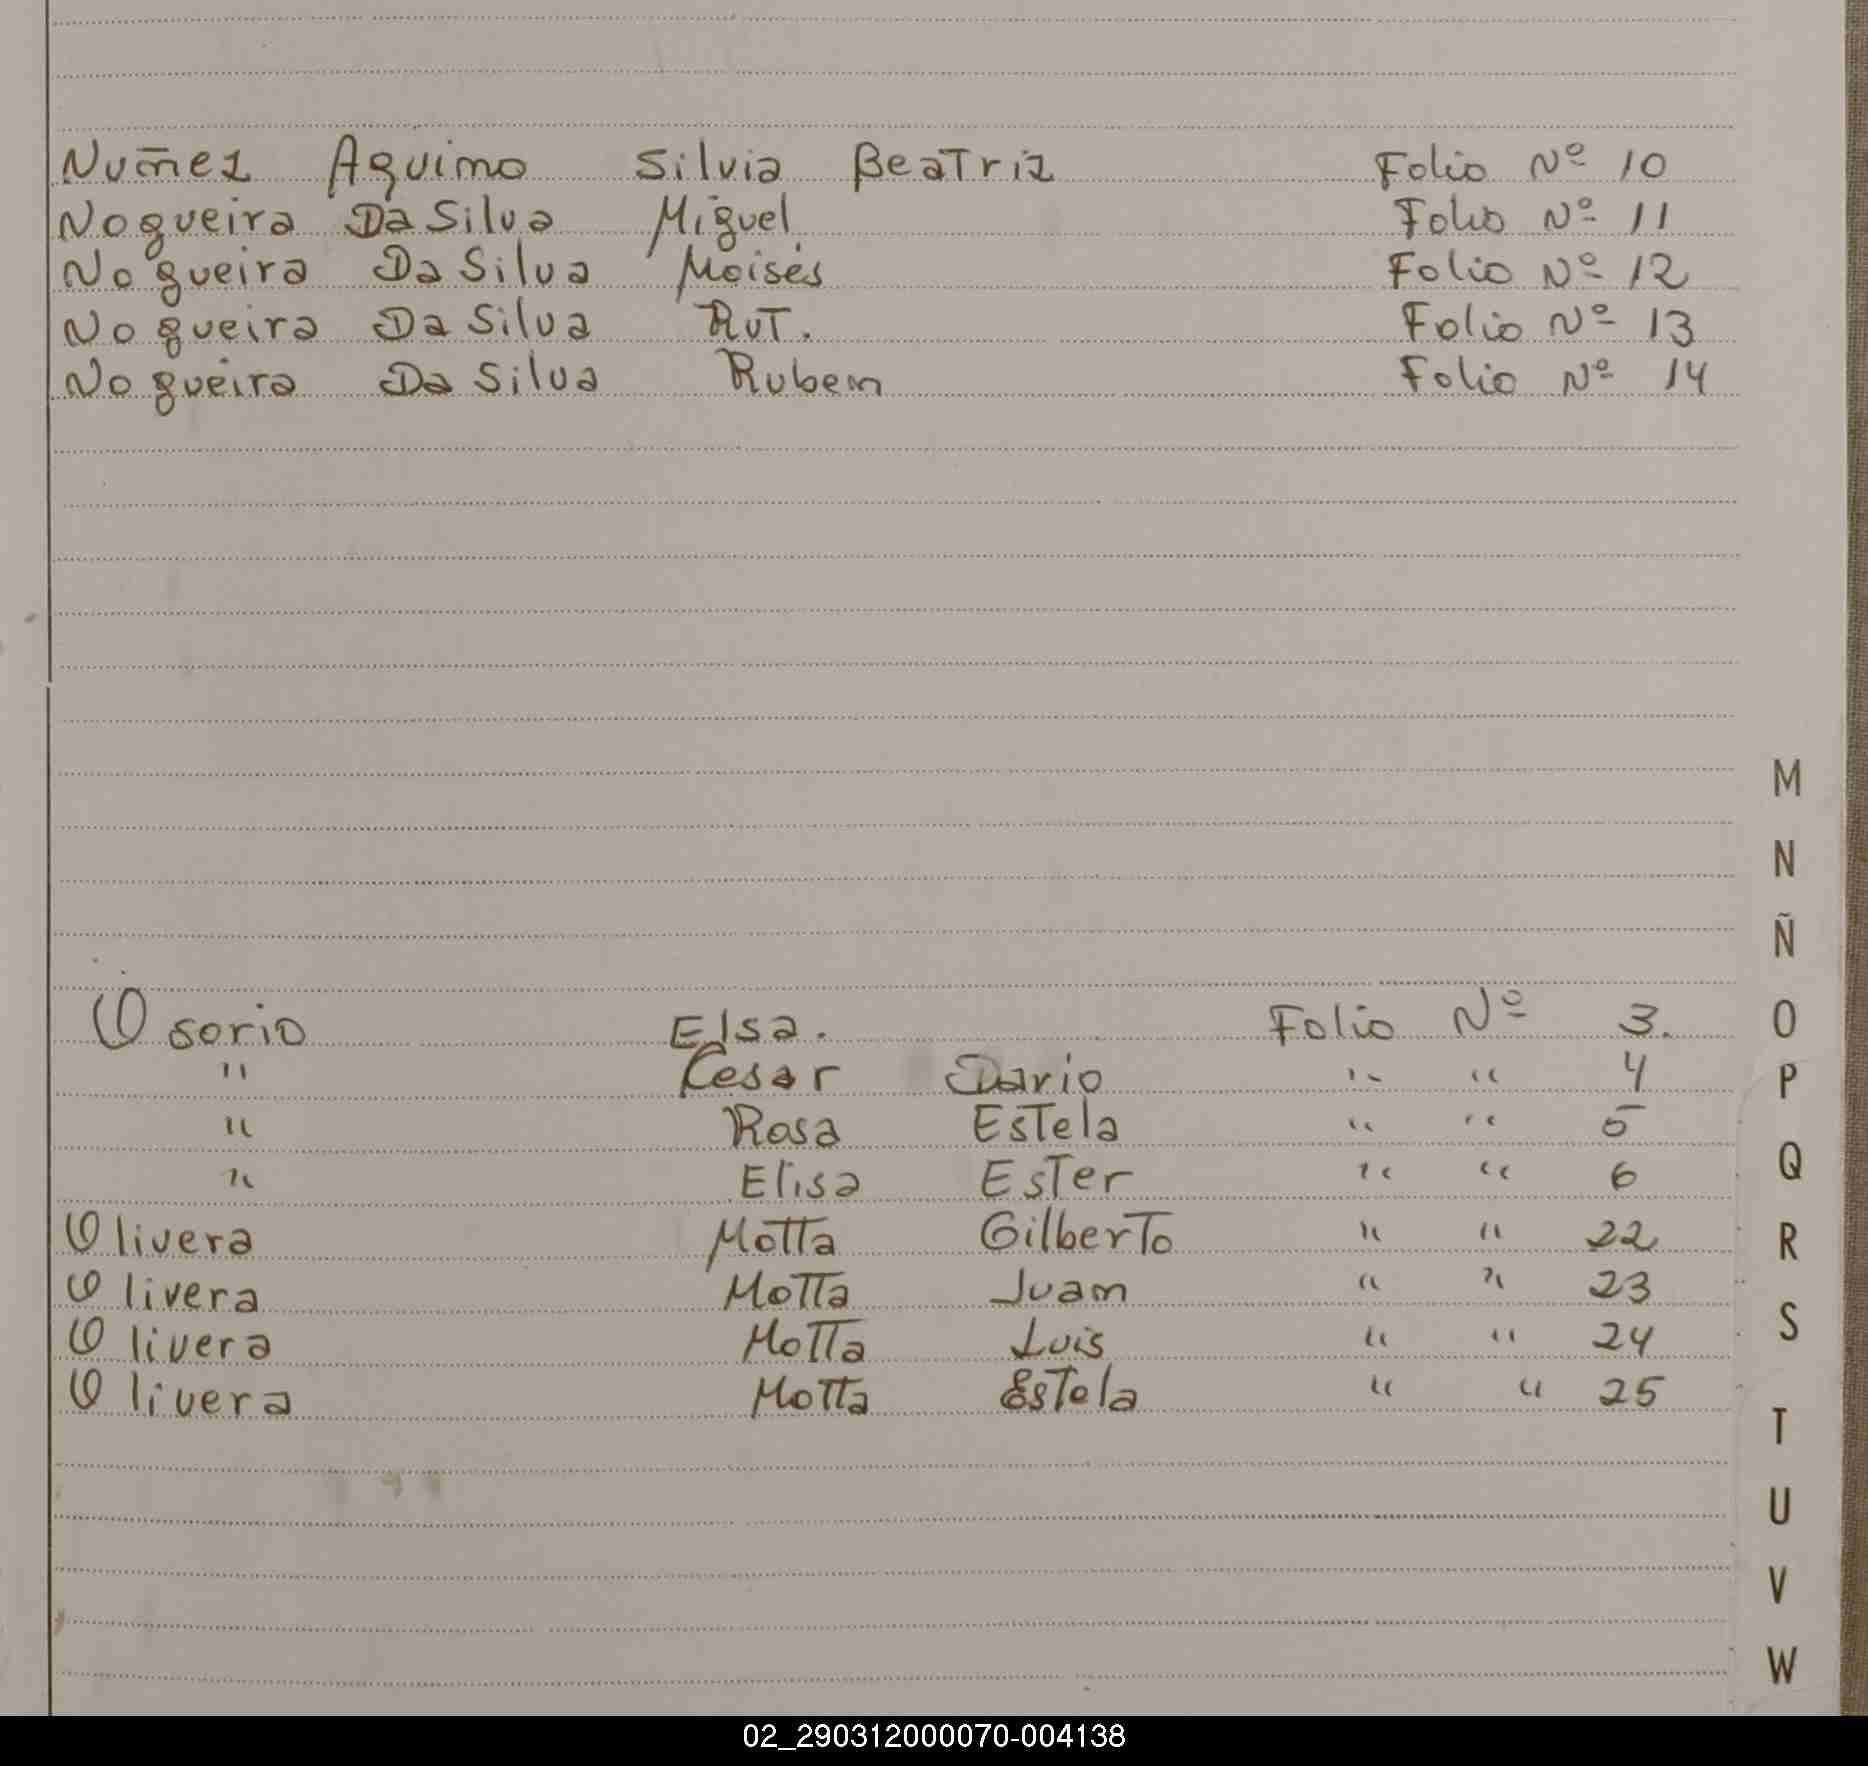 Nuñez Aquino Silvia Beatriz Folio Nº 10
Nogueira Da Silva Miguel Folio Nº 11
Nogueira Da Silva Moisés Folio Nº 12
Nogueira Da Silva Rut. Folio Nº 13
Nogueira Da Silva Ruben Folio Nº 14
Osorio Elsa. Folio Nº 3.
" Cesar Dario " " 4
" Rosa Estela " " 5
" Elisa Ester " " 6
Olivera Motta Gilberto " " 22
Olivera Motta Juan " " 23
Olivera Motta Luis " " 24
Olivera Motta Estela " " 25
M
N
Ñ
O
P
Q
R
S
T
U
V
W
02_290312000070-004138